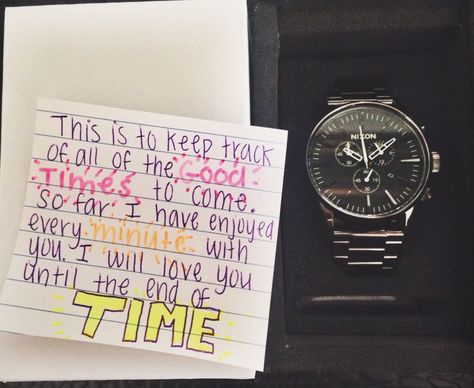 This is to keep track
of all of the Good
Times to come.
So far I have enjoyed
every minute with
you. I will love you
until the end of
TIME
NIXON